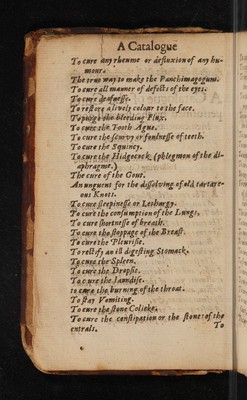 A Catalogue
To cure any rheume or defluxion of any hu-
mour.
The true way to make the Panchimagogum.
To cure all manner of defects of the eyes.
To cure deafnesse.
To restore a lively colour to the face.
To purge the bleeding Flux.
To cure the Tooth-Ague.
To cure the scurvy or foulnesse of teeth.
To cure the Squincy.
To cure the Hidgecock (phlegmon of the di-
aphragme.)
The cure of the Gout.
An unguent for the dissolving of old tartare-
ous Knots.
To cure sleepinesse or Lethargy.
To cure the consumption of the Lungs,
To cure shortnesse of breath.
To cure the stoppage of the Breast.
To cure the Pleurisie.
To rectify an ill digesting Stomack.
To cure the Spleen.
To cure the Dropsie.
To cure the Jaundise.
to cure the burning of the throat.
To stay Vomiting.
To cure the stone Colicke.
To cure the constipation or the stone of the
entrals.
To